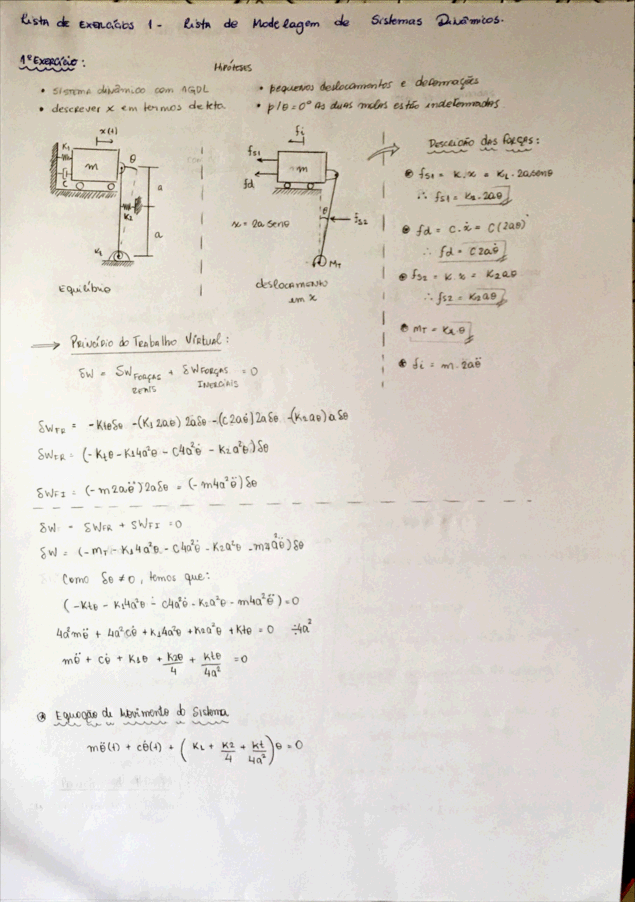 Lista de Exercícios 1 - Lista de Modelagem de Sistemas Dinâmicos.
1º Exercício:
Hipóteses
• sistema dinâmico com 1GDL
• descrever x em termos de teta.
• pequenos deslocamentos e deformações
• p/θ=0° as duas molas estão indeformadas
x(t)
K1
m
θ
C
a
K2
a
Kt
Equilíbrio
fi
fs1
m
fd
θ
fs2
x = 2a senθ
MT
deslocamento
em x
Descrição das forças:
fs1 = K.x = K1.2asenθ
∴ fs1 = K1.2aθ
fd = C.ẋ = C(2aθ)˙
∴ fd = C2aθ̇
fs2 = K.x = K2aθ
∴ fs2 = K2aθ
MT = Ktθ
fi = m.2aθ̈
→ Princípio do Trabalho Virtual:
δW = δW FORÇAS REAIS + δW FORÇAS INERCIAIS = 0
δWFR = -Ktθδθ -(K1 2aθ) 2aδθ -(C2aθ̇)2aδθ -(K2aθ)aδθ
δWFR = (-Ktθ - K14a²θ - C4a²θ̇ - K2a²θ)δθ
δWFI = (-m2aθ̈)2aδθ = (-m4a²θ̈)δθ
δW = δWFR + δWFI = 0
δW = (-MT - K14a²θ - C4a²θ̇ - K2a²θ - m4a²θ̈)δθ
Como δθ ≠ 0, temos que:
(-Ktθ - K14a²θ - C4a²θ̇ - K2a²θ - m4a²θ̈) = 0
4a²mθ̈ + 4a²cθ̇ + K14a²θ + K2a²θ + Ktθ = 0 ÷4a²
mθ̈ + cθ̇ + K1θ + K2θ/4 + Ktθ/4a² = 0
Equação de Movimento do Sistema
mθ̈(t) + cθ̇(t) + (K1 + K2/4 + Kt/4a²)θ = 0